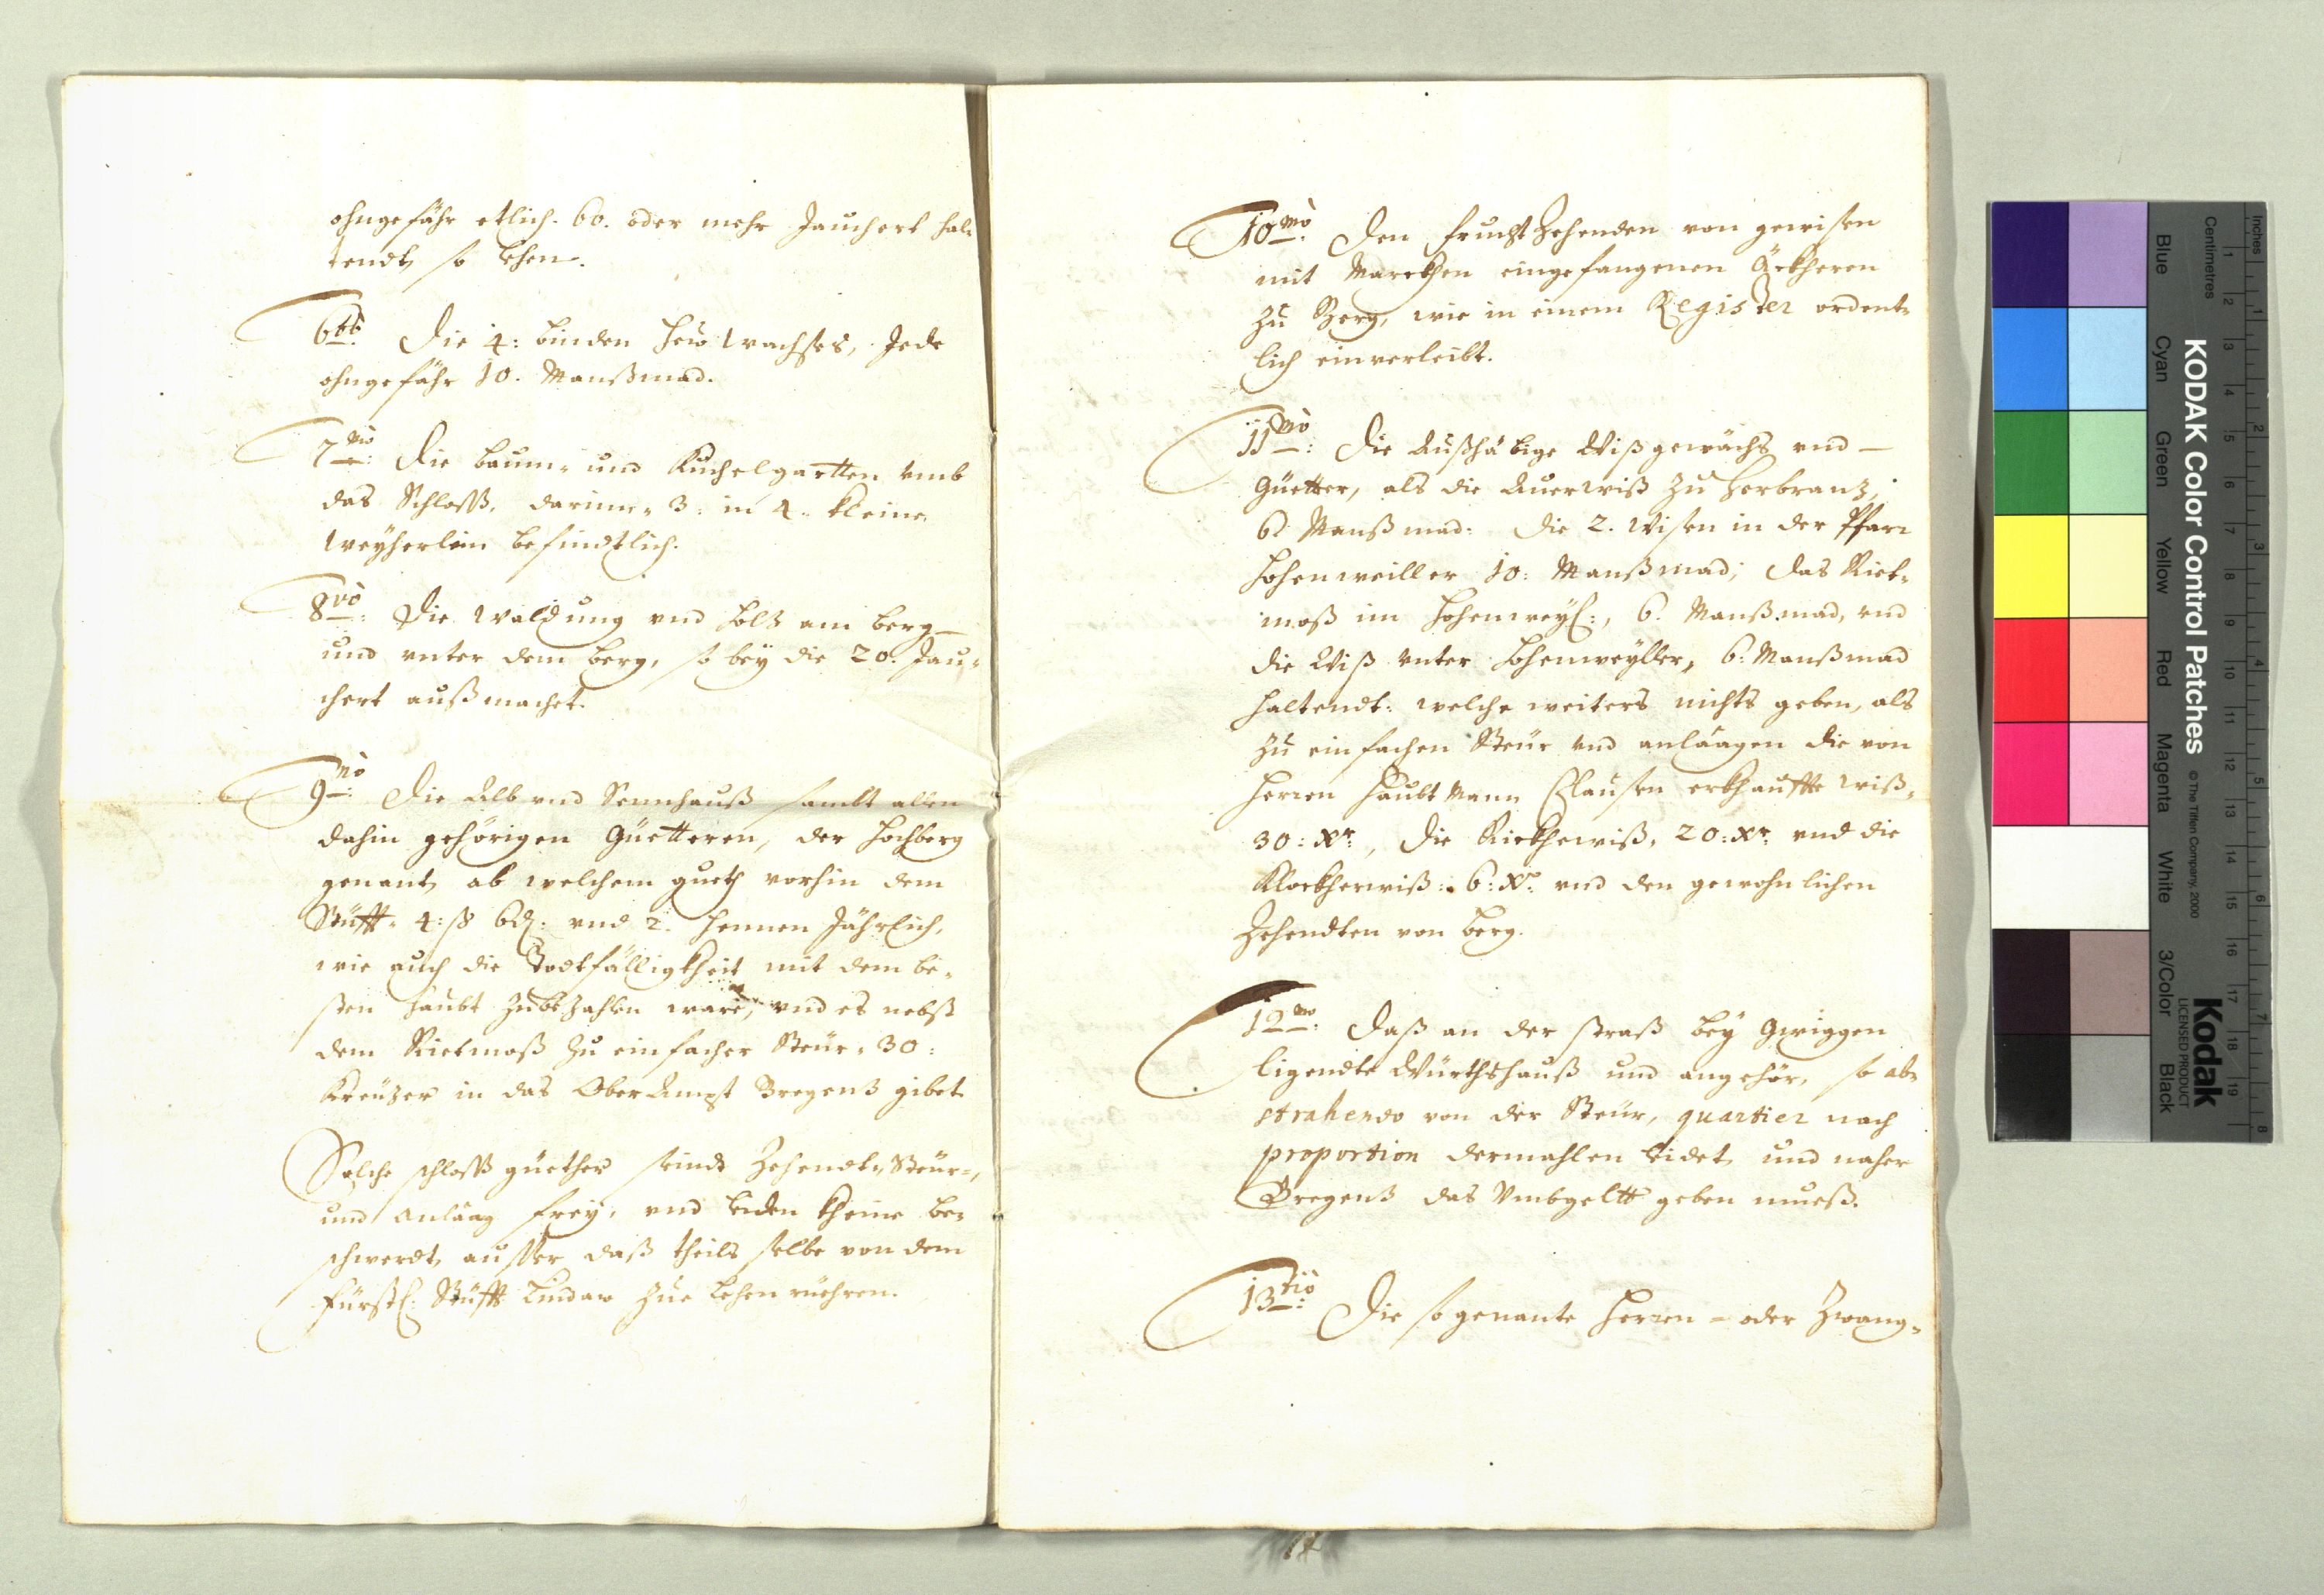 ohngefähr etlich. 60. oder mehr Jauchert hal-
tendt, so Lehen.
6tò. Die 4: Linden Hew wachses, Jede
ohngefähr 10. Mansmad.
7mò: Die Baum- und Kuchelgartten vmb
das Schloss, darinn, 3: in 4. kleine
weyherlein befindtlich.
8vò: Die Waldung vnd Holz am Berg
und vnter dem Berg, so bey die 20. Jau-
chert außmachet.
9nò: Die Alb vnd Sennhauß sambt allen
dahin gehörigen Güetteren, der Hochberg
genant, ab welchem gueth vorhin dem
Stüfft. 4: ß 6 d: vnd 2. Hennen Jährlich,
wie auch die Todtfälligkheit mit dem be-
sten Haubt zubezahlen ware, vnd es nebst
dem Rietmoß zu einfacher Steür. 30:
Kreüzer in das Ober Ampt Bregenz gibet
Solche schloss güether seindt Zehendt-, Steür-,
und Anlaag frey, vnd leiden kheine be-
schwerdt, ausser daß theils selbe von dem
Fürstl: Stüfft Lindaw zue Lehen rüehren.
10mò. Den frucht Zehenden von gewisen
mit Marckhen eingefangenen Äckheren
zu Berg, wie in einem Register ordent-
lich einverleibt.
11mò: Die Außhäbige Wißgewächs vnd
Güetter, als die Auerwiß zu Herbranz,
6. Manßmad: die 2. Wisen in der Pfarr
Hohenweiller 10: Manßmad; das Riet-
moß im Hohenweyl:, 6. Manßmad, vnd
die Wiß vnter Hohenweyller, 6: Manßmad
haltendt: welche weiters nichts geben, als
zu einfachen Steür vnd anlaagen die von
Herren Haubt Mann Clausen erkhauffte wiß,
30: Xr:, die Riekherwiß, 20: Xr: vnd die
Klockherwiß: 6: Xr: vnd den gewohnlichen
Zehendten von Berg.
12mò: Daß an der straß bey Gwiggen
ligendte Würthshauß und angehör, so ab-
strahendo von der Steür, quartier nach
proportion dermahlen leidet, und naher
Bregenz das Vmbgeltt geben mueß.
13tiò: Die so genante Herren- oder Zwang-
Inches
Centimetres
KODAK Color Control Patches
© The Tiffen Company, 2000
Kodak
LICENSED PRODUCT
Blue
Cyan
Green
Yellow
Red
Magenta
White
3/Color
Black